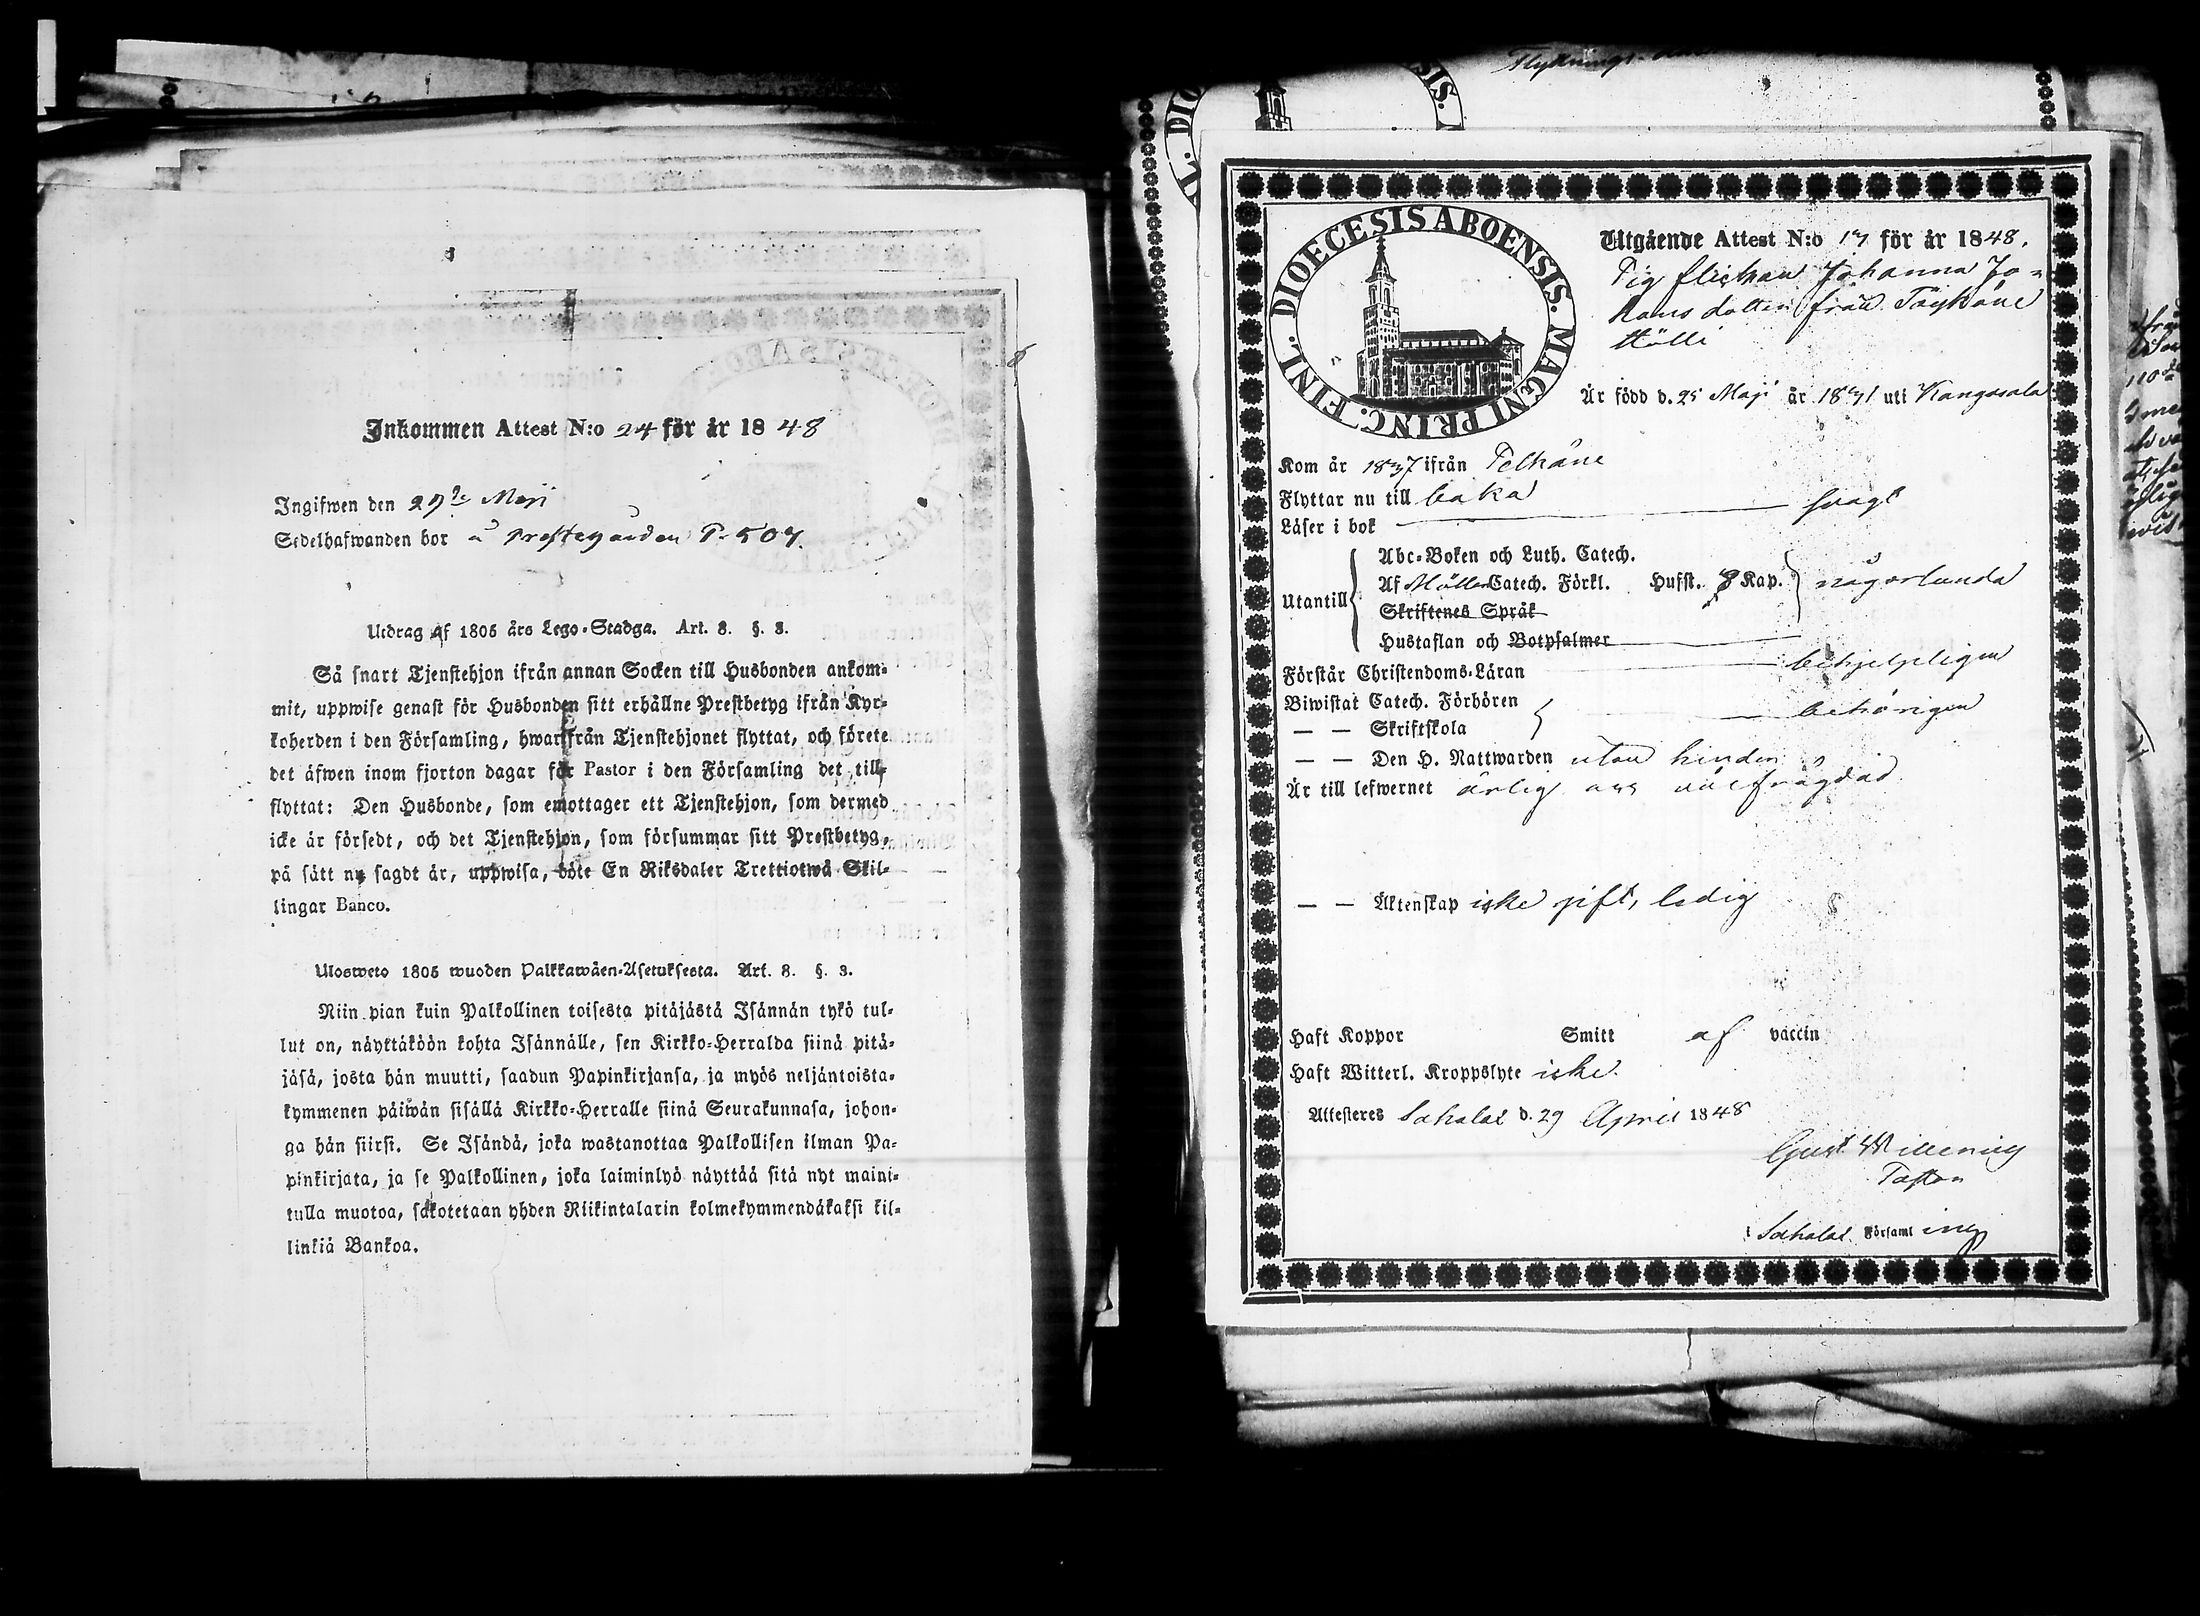 Inkommen Attest N:o 24 för år 1848
Ingifwen den 29de Maji
Sedelhafwanden bor å Prestegården P. 507.
Utdrag af 1805 års Lego-Stadga. Art. 8. §. 3.
Så snart Tjenstehjon ifrån annan Socken till Husbonden ankom-
mit, uppwise genast för Husbonden sitt erhållne Prestbetyg ifrån Kyr-
koherden i den Församling, hwarifrån Tjenstehjonet flyttat, och förete
det äfwen inom fjorton dagar för Pastor i den Församling det till-
flyttat: Den Husbonde, som emottager ett Tjenstehjon, som dermed
icke är försedt, och det Tjenstehjon, som försummar sitt Prestbetyg,
på sätt nu sagdt är, uppwisa, böte En Riksdaler Trettiotwå Skil-
lingar Banco.
Ulosweto 1805 wuoden Palkkawäen-Asetuksesta. Art. 8. §. 3.
Niin pian kuin Palkollinen toisesta pitäjästä Isännän tykö tul-
lut on, näyttäköön kohta Isännälle, sen Kirkko-Herralda siinä pitä-
jäsä, josta hän muutti, saadun Papinkirjansa, ja myös neljäntoista-
kymmenen päiwän sisällä Kirkko-Herralle siinä Seurakunnasa, johon-
ga hän siirsi. Se Isändä, joka wastanottaa Palkollisen ilman Pa-
pinkirjata, ja se Palkollinen, joka laiminlyö näyttää sitä nyt maini-
tulla muotoa, sakotetaan yhden Riikintalarin kolmekymmendäkaksi kil-
linkiä Bankoa.
Flyttnings-
DIOECESIS ABOENSIS. MAGNI PRINC. FINL.
Utgående Attest N:o 17 för år 1848.
Pig flickan Johanna Jo-
hans dotter från Töyköne
Hölli
Är född d. 25 Maji år 1831 uti Kangasala
Kom år 1837 ifrån Pelkäne
Flyttar nu till baka
Läser i bok svagt
Utantill
Abc-Boken och Luth. Catech.
Af Möllers Catech. Förkl. Hufst. 8 Kap. någorlunda
Skriftenes Språk
Hustaflan och Botpsalmer
Förstår Christendoms-Läran behjelpligen
Biwistat Catech. Förhören
— — Skriftskola behörigen
— — Den H. Nattwarden utan hinder
Är till lefwernet ärlig och välfrägdad
— — Äktenskap icke gift, ledig
Haft Koppor Smitt af vaccin
Haft Witterl. Kroppslyte icke.
Attesteres Sahalax d. 29 April 1848
Gust. Willenius
Pastor
i Sahalax Församling